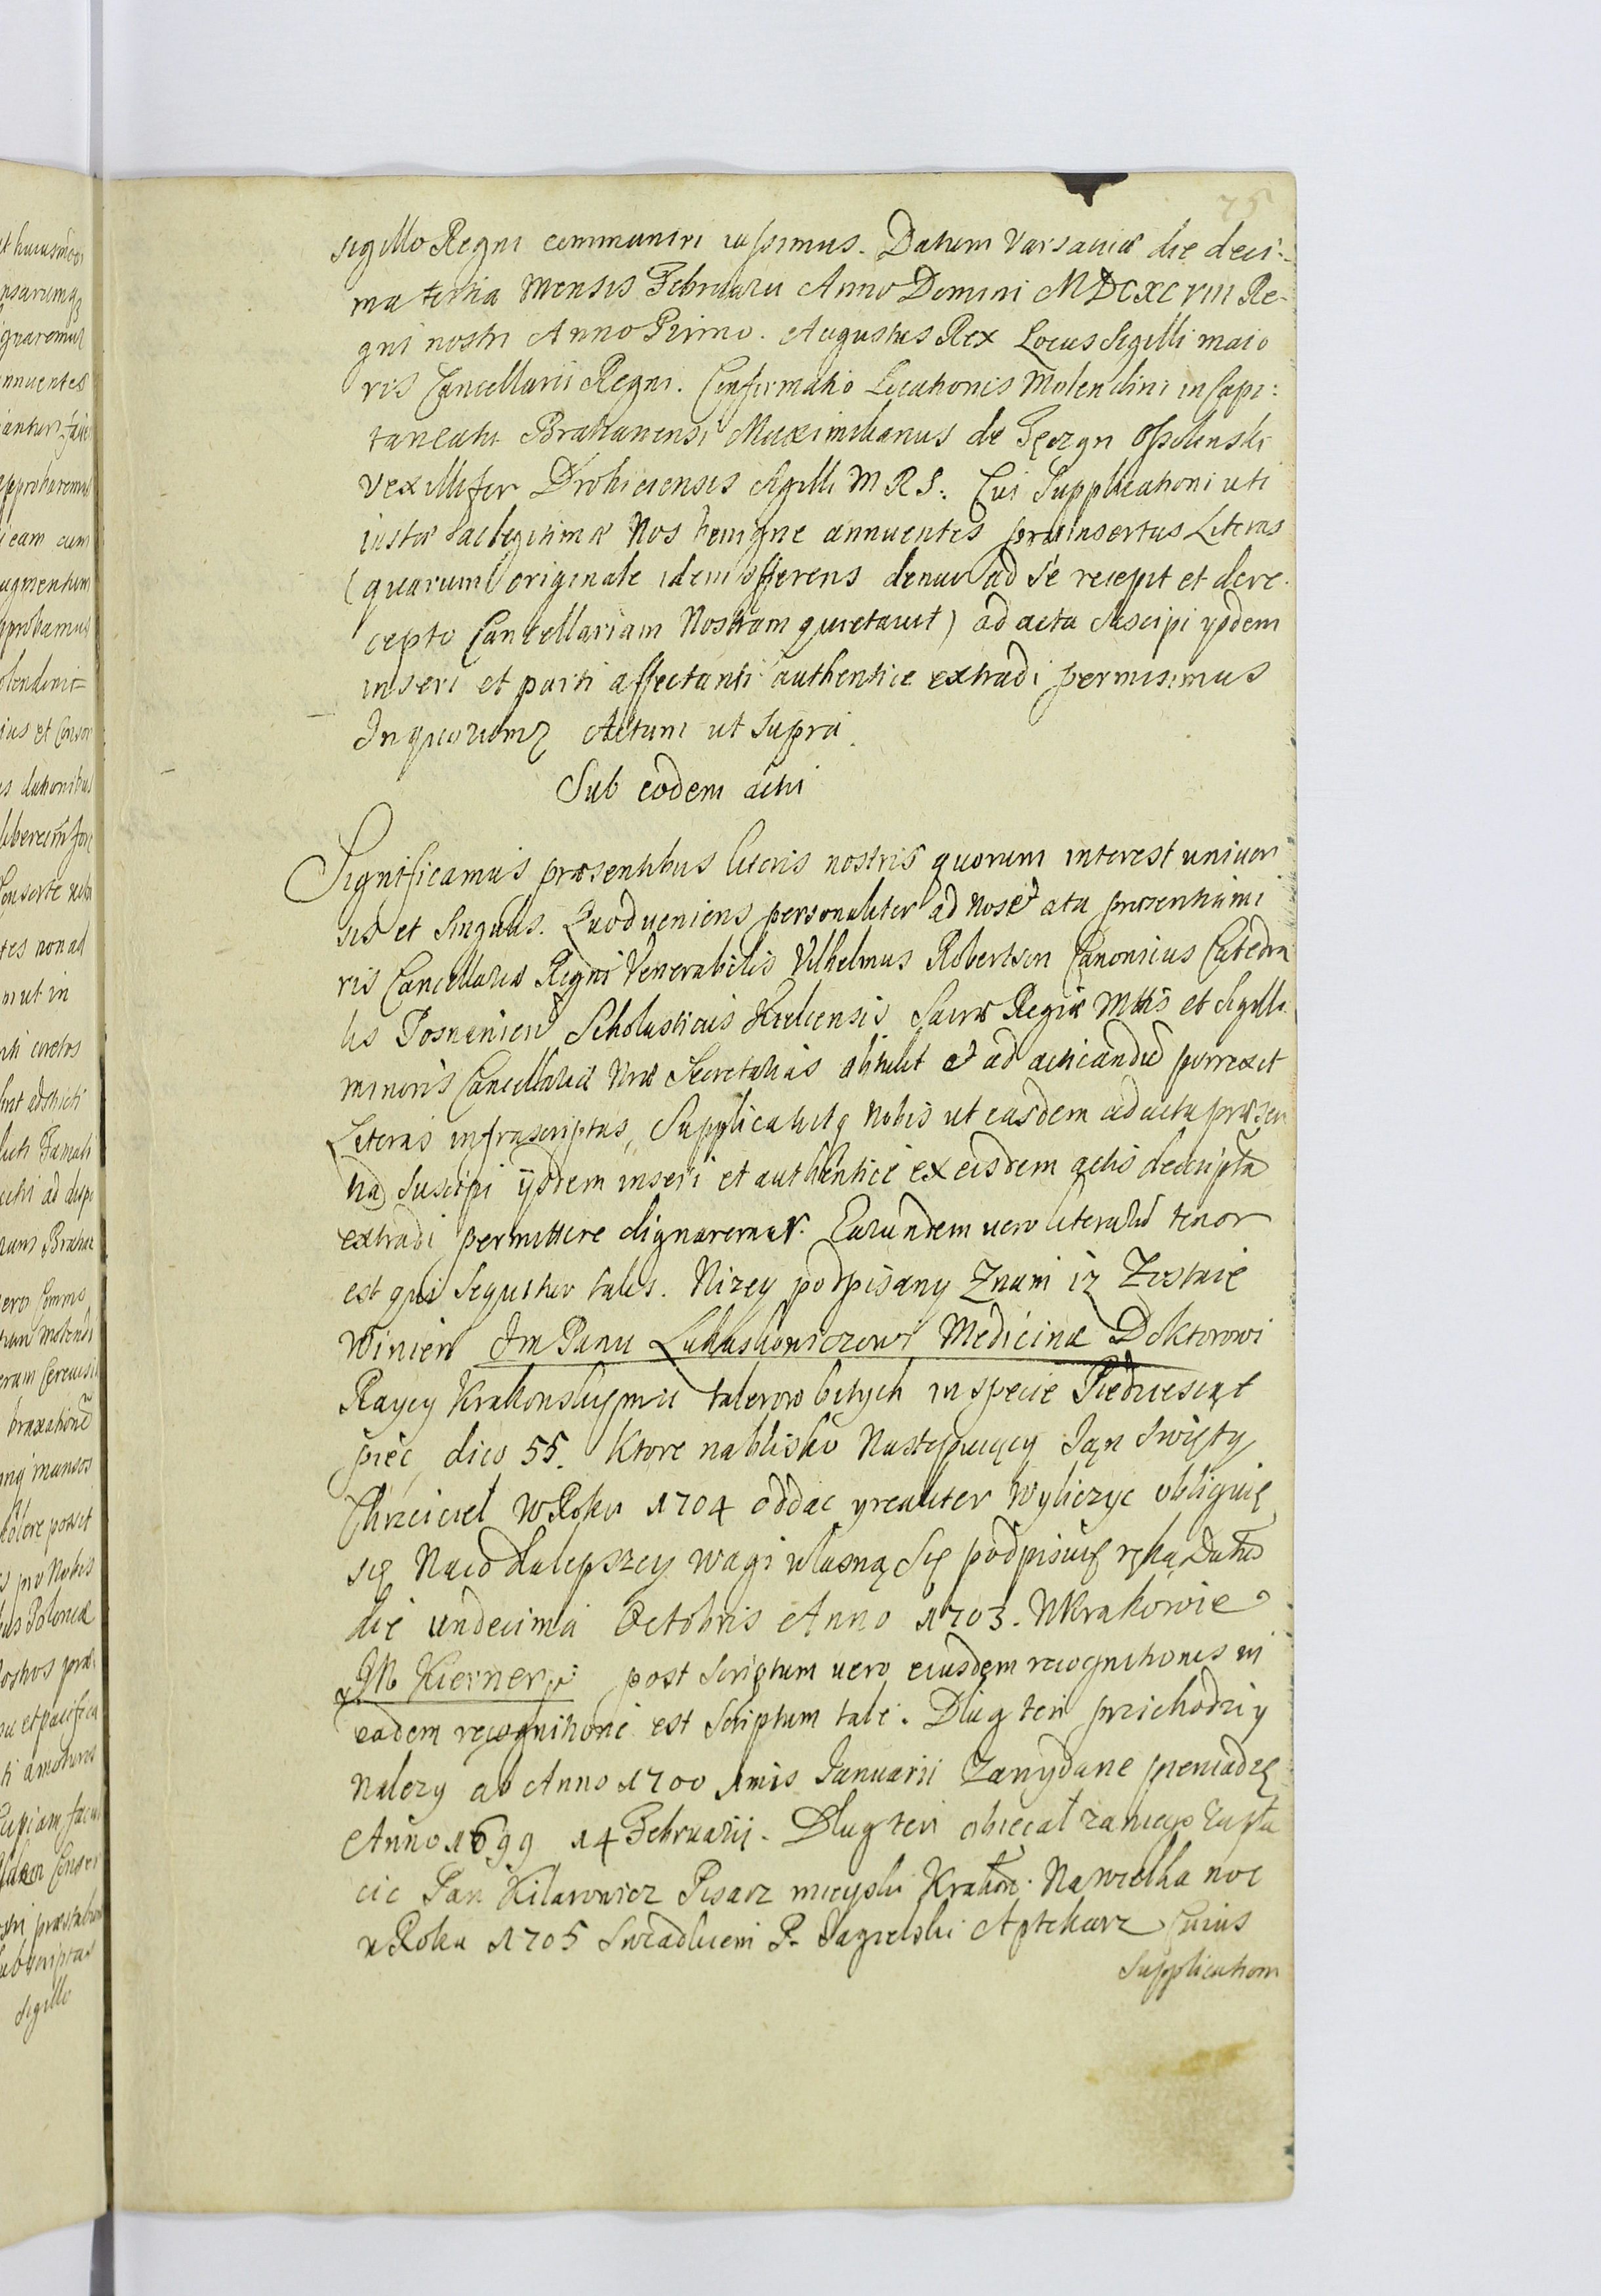 75
sigillo Regni communiri iussimus. Datum Varsaviæ die deci:
ma tertia Mensis Februarii Anno Domini MDCXCVIII Re-
gni nostri Anno Primo. Augustus Rex Locus Sigilli maio
ris Cancellarii Regni. Confirmatio Locationis Molendini in Capi:
taneatu Bratianensi Maximilianus de Tęczyn Ossolinski
vexillifer Drohiciensis Sigilli M R S. Cui Supplicationi uti
iustæ ac legitimæ Nos benigne annuentes præinsertas Literas
(quarum originale idem offerens denuo ad se recepit et de re-
cepto Cancellariam Nostram quietavit) ad acta suscipi ysdem
inseri et parti affectanti authentice extradi permisimus
In quorumq Actum ut supra.
Sub eodem actu
Significamus præsentibus literis nostris quorum interest univer
sis et singulis. Quod veniens personaliter ad Nos et acta præsentia mi
ris Cancellariæ Regni Venerabilis Vilhelmus Robertson Canonicus Catedra
lis Posnanien Scholasticus Kielcensis Sacræ Regiæ Mttis et Sigilli
minoris Cancellariæ Nræ Secretarius obtulit et ad acticandū porrexit
Literas infrascriptas, Supplicavitq Nobis ut easdem ad acta præsen
tia suscipi ijsdem inseri et authentice ex eisdem actis descripta
extradi permittere dignaremur. Earundem vero literarū tenor
est qui sequitur talis. Nizey podpisany Znam iz Zostaie
Winien Jm Panu Lukaskowiczowi Medicinæ Doktorowi
Raycy Krakonskiymu talerow bitych in specie Piedziesiąt
pięć, dico 55. Ktore nablisko Nastepuiący Jąn Swięty
Chrzciciel W Roku 1704 oddac y realiter wyliczyc obliguię
się Na co dla lepszey wagi własną się podpisuię ręką Datū
die undecima Octobris Anno 1703. W Krakowie
JM Kierner post scriptum vero eiusdem recognitionis in
eadem recognitione est scriptum tale. Dlug ten przichodzi y
Nalezy ab Anno 1700 1mis Januarii Za wydane pieniadzę
Anno 1699 14 Februarij. Dlug ten obiecał za niego zapła
cic Pan Hilarowicz Pisarz mieyski Krakow: Na wielka noc
w Roku 1705 Swiadkiem P. Jagielski Aptekarz Cuius
Supplicationi